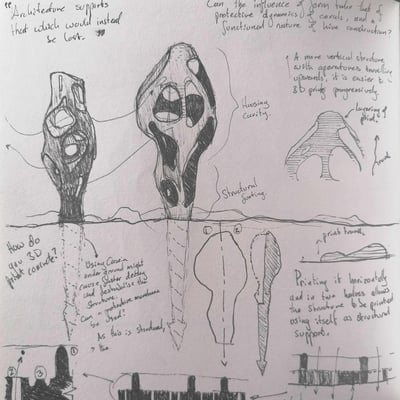 "Architecture supports
that which would instead
be lost."
Can the influence of form take that of
protective dynamics of corals, and a
functioned nature of hive construction?
A more vertical structure
with apertures travelling
upwards, it is easier to
3D print progressively.
layering of
print.
travel
Housing
Cavity.
Structural
footing.
How do
you 3D
print concrete?
Using Core
underground might
cause faster decay
and destabilise the
structure.
Can a protective membrane
be used?
As this is structural,
1
2
print travel
Printing it horizontally
and in two halves allows
the structure to be printed
using itself as structural
support.
1
2
3